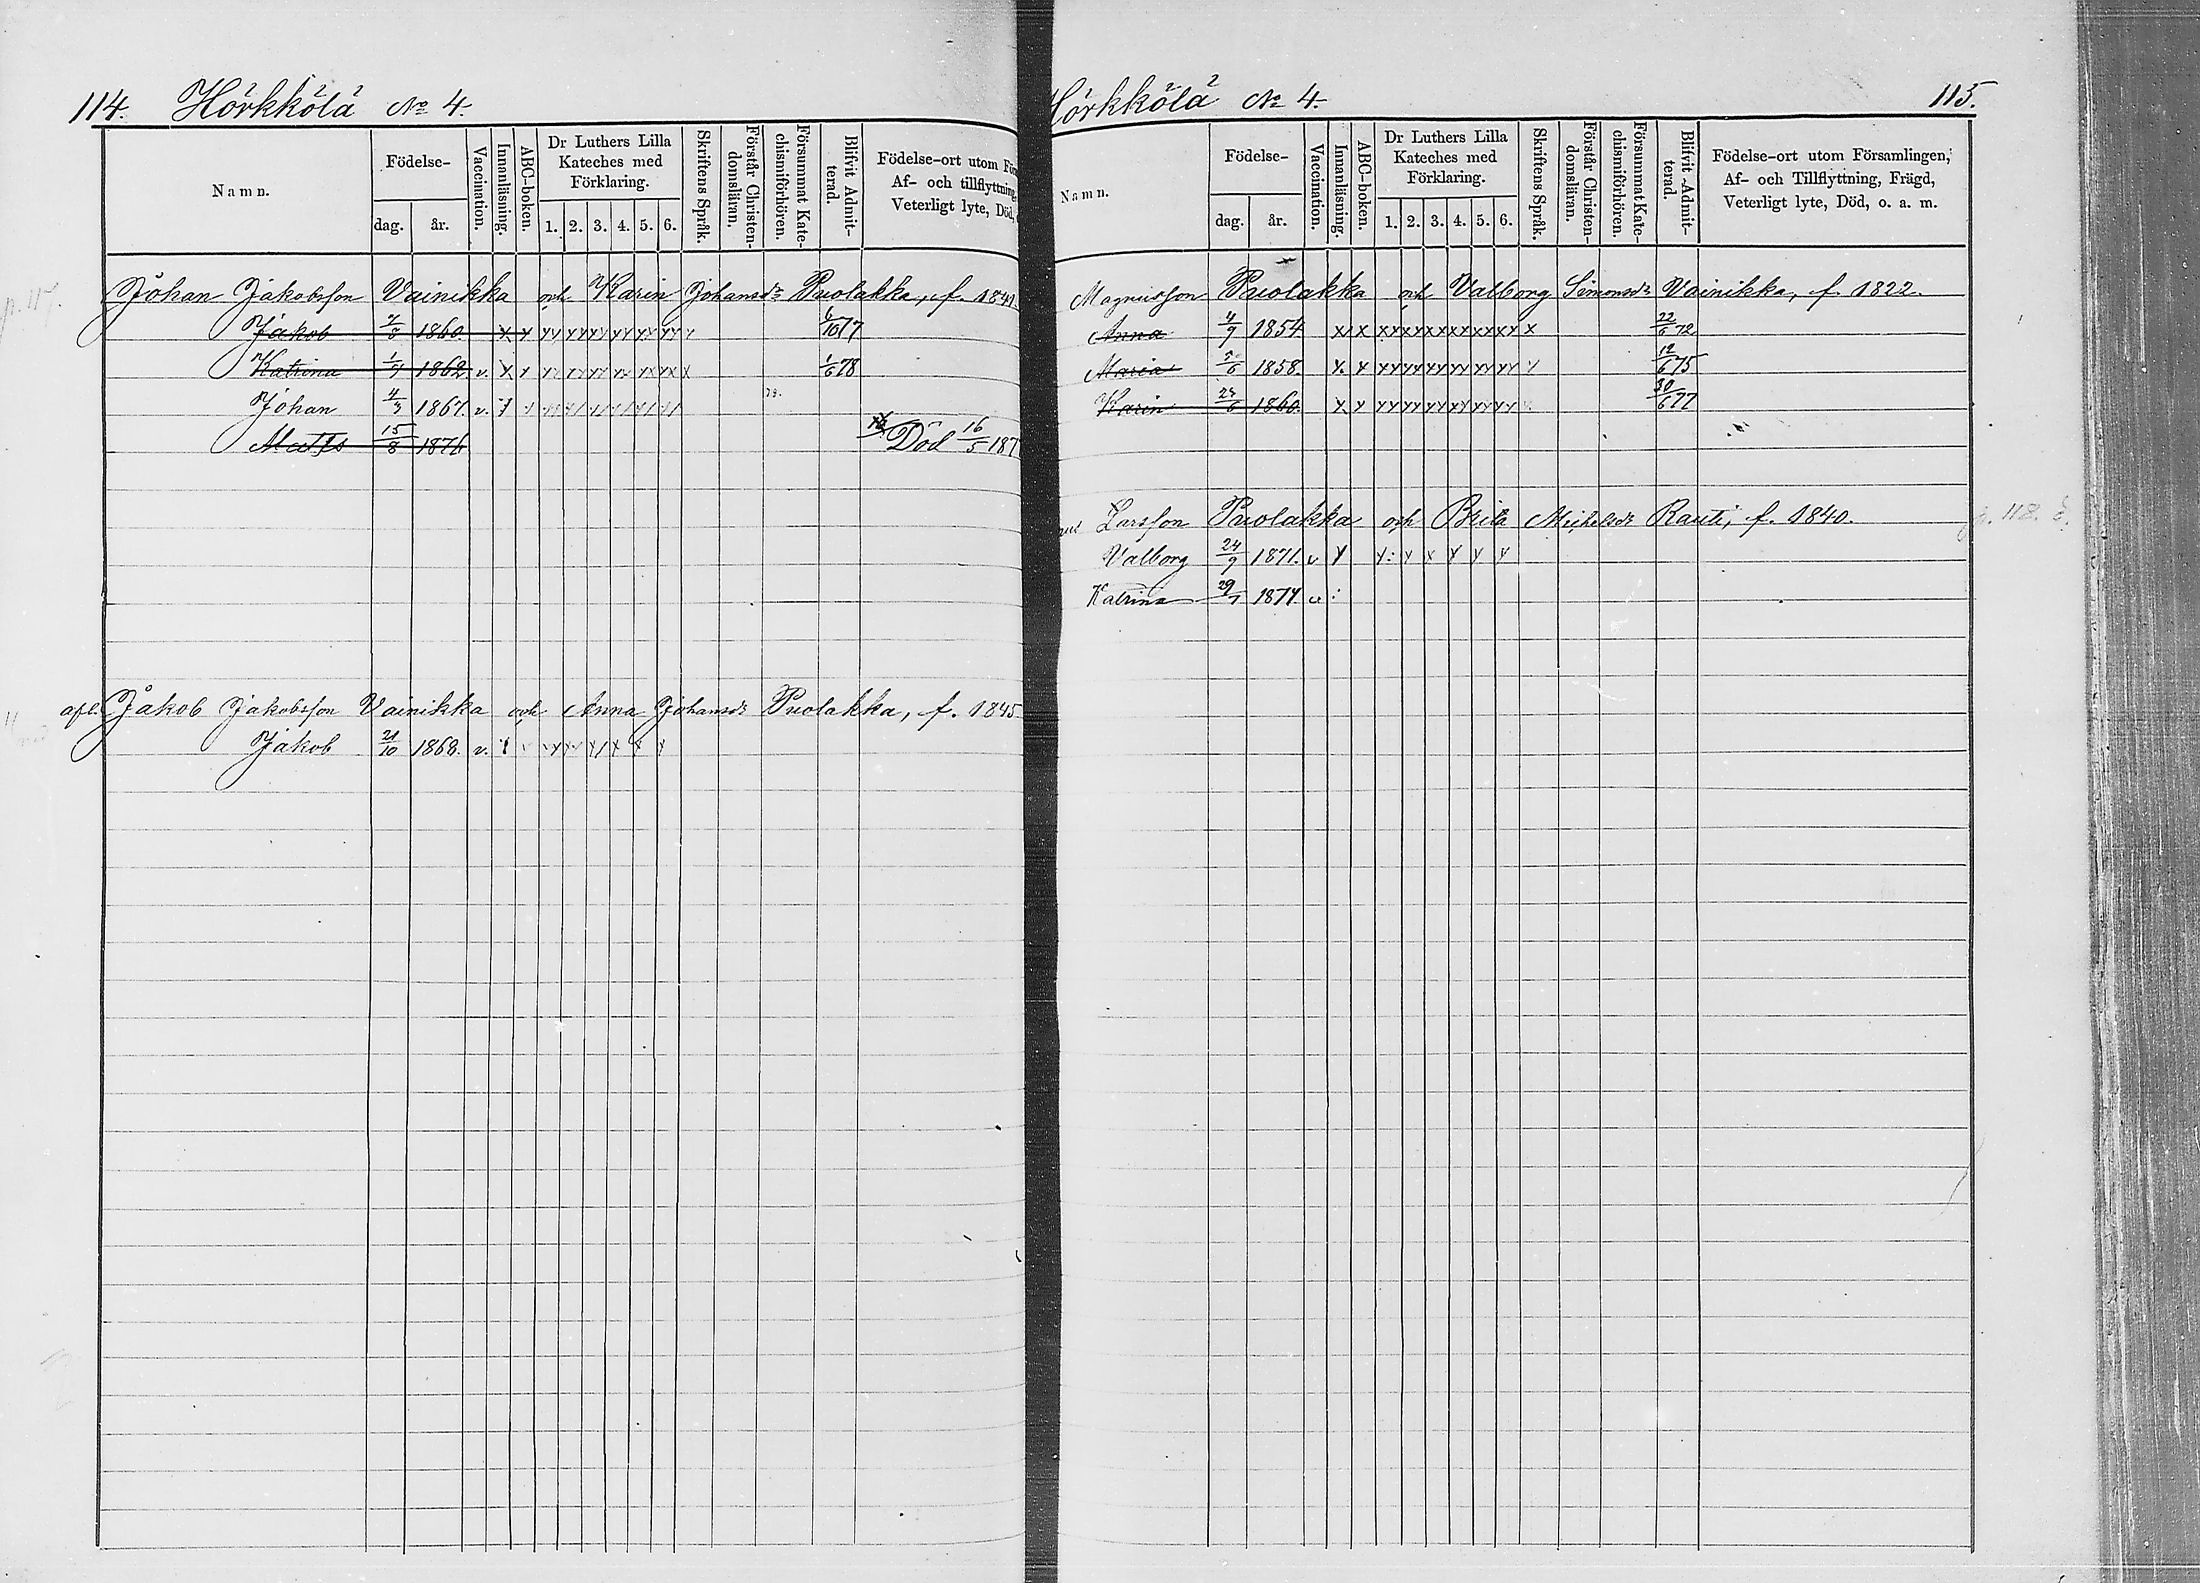 114. Hörkkölä № 4.
Namn.
Födelse-
dag.
år.
Vaccination.
Innanläsning.
ABC-boken.
Dr Luthers Lilla
Kateches med
Förklaring.
1. 2. 3. 4. 5. 6.
Skriftens Språk.
Förstår Christen-
domsläran.
Försummat Kate-
chismiförhören.
Blifvit Admit-
terad.
Födelse-ort utom För
Af- och tillflyttning
Veterligt lyte, Död,
Johan Jakobsson Vainikka och Karin Johansdr Puolakka, f. 1841
Jakob 1860. x x xx xx xx xx xx xx
Katrina 1862. v. x x xx xx xx xx xx xx x 1/6 78
Johan 4/3 1867. v.
Matts 15/8 1876 Död 16/5 187
afl. Jakob Jakobsson Vainikka och Anna Johansdr Puolakka, f. 1845
Jakob 21/10 1868. v.
Hörkkölä № 4. 115.
Namn.
Födelse-
dag.
år.
Vaccination.
Innanläsning.
ABC-boken.
Dr Luthers Lilla
Kateches med
Förklaring.
1. 2. 3. 4. 5. 6.
Skriftens Språk.
Förstår Christen-
domsläran.
Försummat Kate-
chismiförhören.
Blifvit Admit-
terad.
Födelse-ort utom Församlingen,
Af- och Tillflyttning, Frägd,
Veterligt lyte, Död, o. a. m.
Magnusson Puolakka och Valborg Simonsdr Vainikka, f. 1822.
Anna 4/9 1854 x x xx xx xx xx xx xx x 22/6 72
Maria 1858. x x xx xx xx xx xx xx x 12/6 75
Karin 1860. x x xx xx xx xx xx xx 30/6 77
Larsson Puolakka och Brita Michelsdr Rauti, f. 1840. p. 118.
Valborg 24/9 1871. v x x x x x x x
Katrina 1877. v